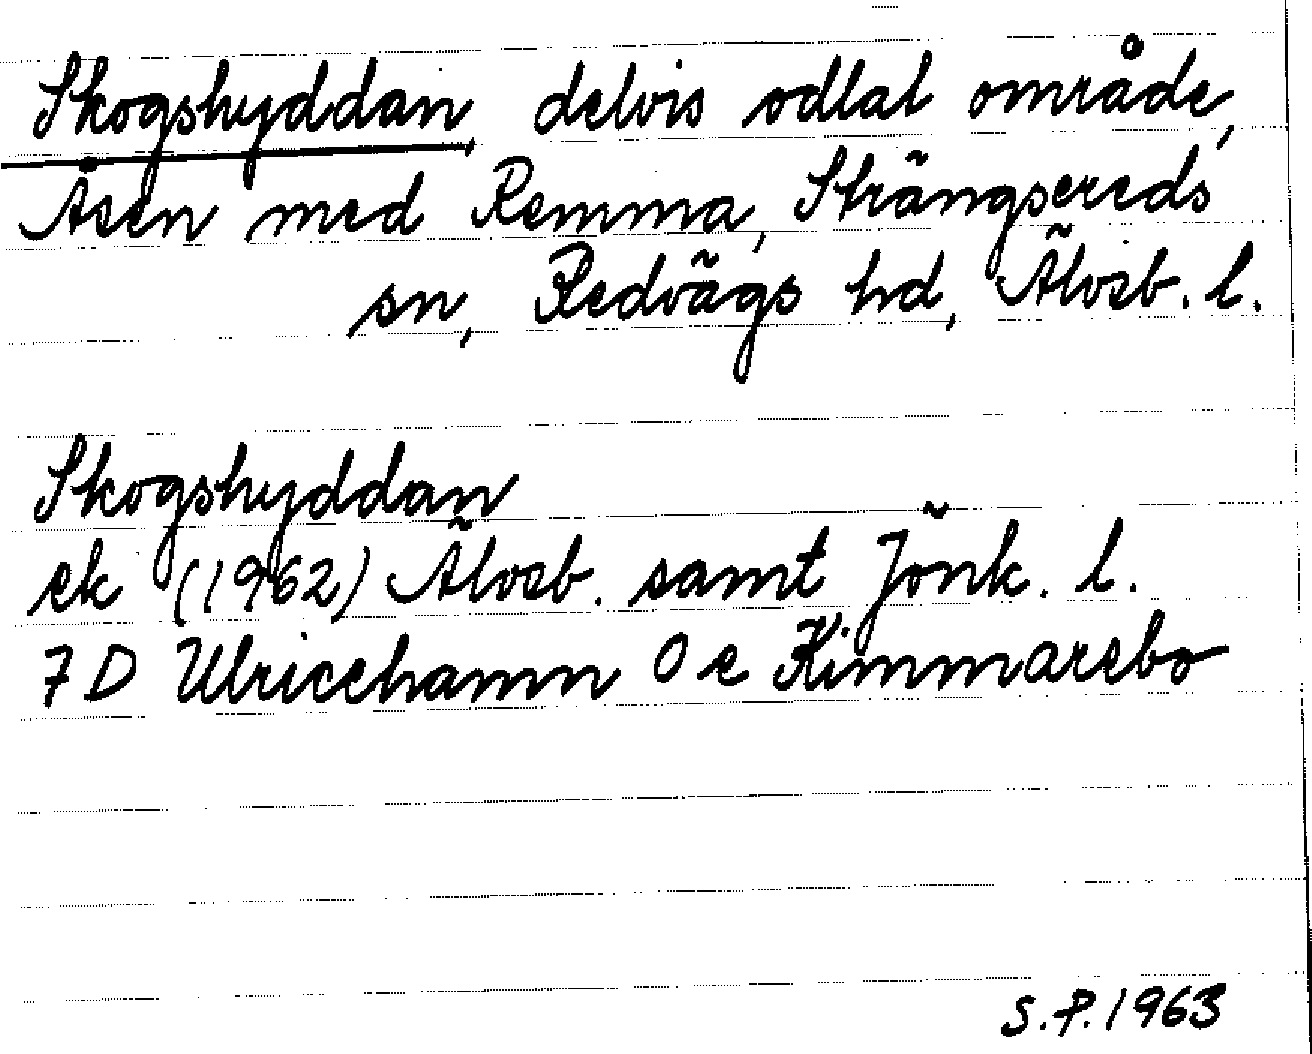 Skogshyddan, delvis odlat område,
Åsen med Remma, Strängsereds
sn, Redvägs hd, Älvsb. l.
Skogshyddan
ek (1962) Älvsb. samt Jönk. l.
7 D Ulricehamn 0 e Kimmarebo
S.P. 1963